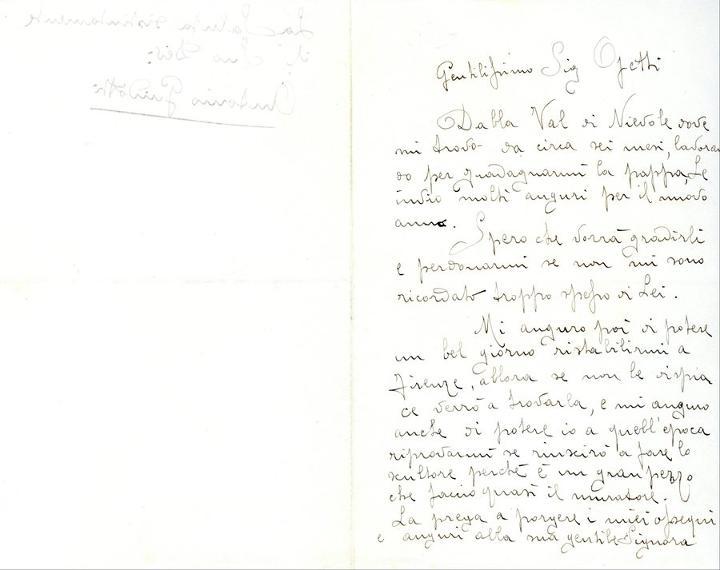 Gentilissimo Sig Ojetti
Dalla Val di Nievole dove
mi trovo da circa sei mesi, lavoran
do per guadagnarmi la pappa, Le
invio molti auguri per il nuovo
anno.
Spero che vorrà gradirli
e perdonarmi se non mi sono
ricordato troppo spesso di Lei.
Mi auguro poi di potere
un bel giorno ristabilirmi a
Firenze, allora se non le dispia
ce verrò a trovarla, e mi auguro
anche di potere io a quell'epoca
riprovarmi se riuscirò a fare lo
scultore perchè è un gran pezzo
che faccio quasi il muratore.
La prego a porgere i miei ossequi
e auguri alla sua gentile Signora
La saluta distintamente
il Suo Dev.
Antonio